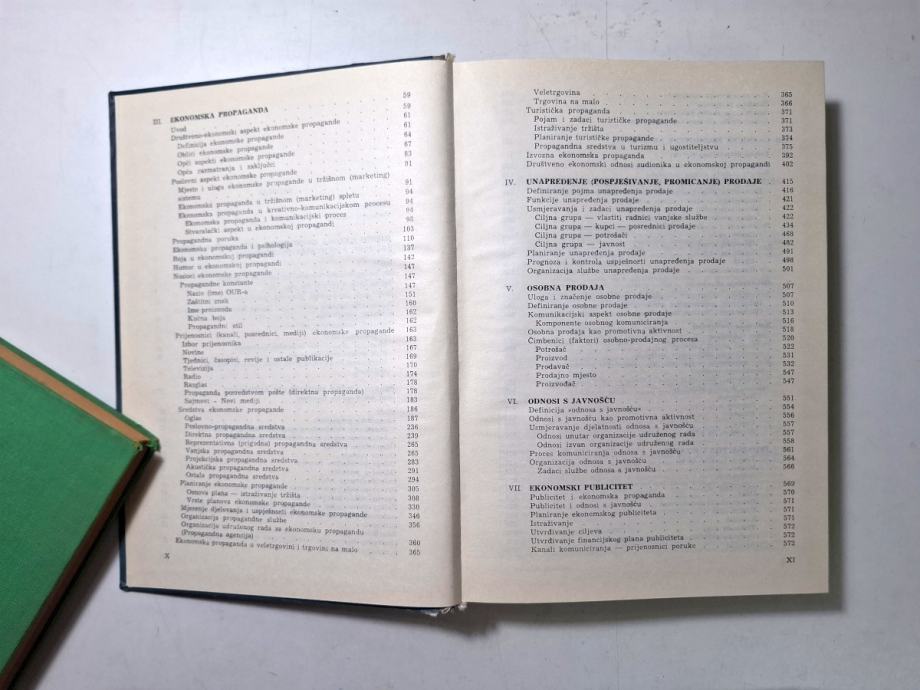 III. EKONOMSKA PROPAGANDA 59
Uvod 59
Društveno-ekonomski aspekt ekonomske propagande 61
Definicija ekonomske propagande 61
Oblici ekonomske propagande 64
Opći aspekti ekonomske propagande 67
Opća razmatranja i zaključci 83
Poslovni aspekt ekonomske propagande 91
Mjesto i uloga ekonomske propagande u tržišnom (marketing)
sistemu 91
Ekonomska propaganda u tržišnom (marketing) spletu 94
Ekonomska propaganda u kreativno-komunikacijskom procesu 94
Ekonomska propaganda i komunikacijski proces 94
Stvaralački aspekt u ekonomskoj propagandi 98
Propagandna poruka 103
Ekonomska propaganda i psihologija 110
Boja u ekonomskoj propagandi 137
Humor u ekonomskoj propagandi 142
Nosioci ekonomske propagande 147
Propagandne konstante 147
Naziv (ime) OUR-a 147
Zaštitni znak 151
Ime proizvoda 160
Kućna boja 162
Propagandni stil 162
Prijenosnici (kanali, posrednici, mediji) ekonomske propagande 163
Izbor prijenosnika 163
Novine 167
Tjednici, časopisi, revije i ostale publikacije 169
Televizija 170
Radio 174
Razglas 178
Propaganda posredstvom pošte (direktna propaganda) 178
Sajmovi – Novi mediji 183
Sredstva ekonomske propagande 186
Oglas 187
Poslovno-propagandna sredstva 236
Direktna propagandna sredstva 239
Reprezentativna (prigodna) propagandna sredstva 265
Vanjska propagandna sredstva 265
Projekcijska propagandna sredstva 283
Akustička propagandna sredstva 291
Ostala propagandna sredstva 294
Planiranje ekonomske propagande 305
Osnova plana — istraživanje tržišta 308
Vrste planova ekonomske propagande 330
Mjerenje djelovanja i uspješnosti ekonomske propagande 346
Organizacija propagandne službe 356
Organizacije udruženog rada za ekonomsku propagandu
(Propagandna agencija) 360
Ekonomska propaganda u veletrgovini i trgovini na malo 365
X
Veletrgovina 365
Trgovina na malo 366
Turistička propaganda 371
Pojam i zadaci turističke propagande 371
Istraživanje tržišta 373
Planiranje turističke propagande 374
Propagandna sredstva u turizmu i ugostiteljstvu 375
Izvozna ekonomska propaganda 392
Društveno ekonomski odnosi sudionika u ekonomskoj propagandi 402
IV. UNAPREĐENJE (POSPJEŠIVANJE, PROMICANJE) PRODAJE 415
Definiranje pojma unapređenja prodaje 416
Funkcije unapređenja prodaje 421
Usmjeravanja i zadaci unapređenja prodaje 422
Ciljna grupa — vlastiti radnici vanjske službe 422
Ciljna grupa — kupci — posrednici prodaje 434
Ciljna grupa — potrošači 468
Ciljna grupa — javnost 482
Planiranje unapređenja prodaje 491
Prognoza i kontrola uspješnosti unapređenja prodaje 498
Organizacija službe unapređenja prodaje 501
V. OSOBNA PRODAJA 507
Uloga i značenje osobne prodaje 507
Definiranje osobne prodaje 510
Komunikacijski aspekt osobne prodaje 513
Komponente osobnog komuniciranja 516
Osobna prodaja kao promotivna aktivnost 518
Čimbenici (faktori) osobno-prodajnog procesa 520
Potrošač 522
Proizvod 531
Prodavač 532
Prodajno mjesto 547
Proizvođač 547
VI. ODNOSI S JAVNOŠĆU 551
Definicija »odnosa s javnošću« 554
Odnosi s javnošću kao promotivna aktivnost 556
Usmjeravanje djelatnosti odnosa s javnošću 557
Odnosi unutar organizacije udruženog rada 557
Odnosi izvan organizacije udruženog rada 558
Proces komuniciranja odnosa s javnošću 561
Organizacija odnosa s javnošću 564
Zadaci službe odnosa s javnošću 566
VII EKONOMSKI PUBLICITET 569
Publicitet i ekonomska propaganda 570
Publicitet i odnosi s javnošću 571
Planiranje ekonomskog publiciteta 571
Istraživanje 571
Utvrđivanje ciljeva 572
Utvrđivanje financijskog plana publiciteta 572
Kanali komuniciranja — prijenosnici poruke 572
XI